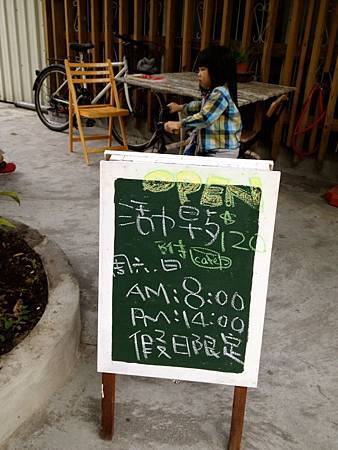 OPEN
活力早午$120
附 cafe
周六.日
AM:8:00
PM:14:00
假日限定